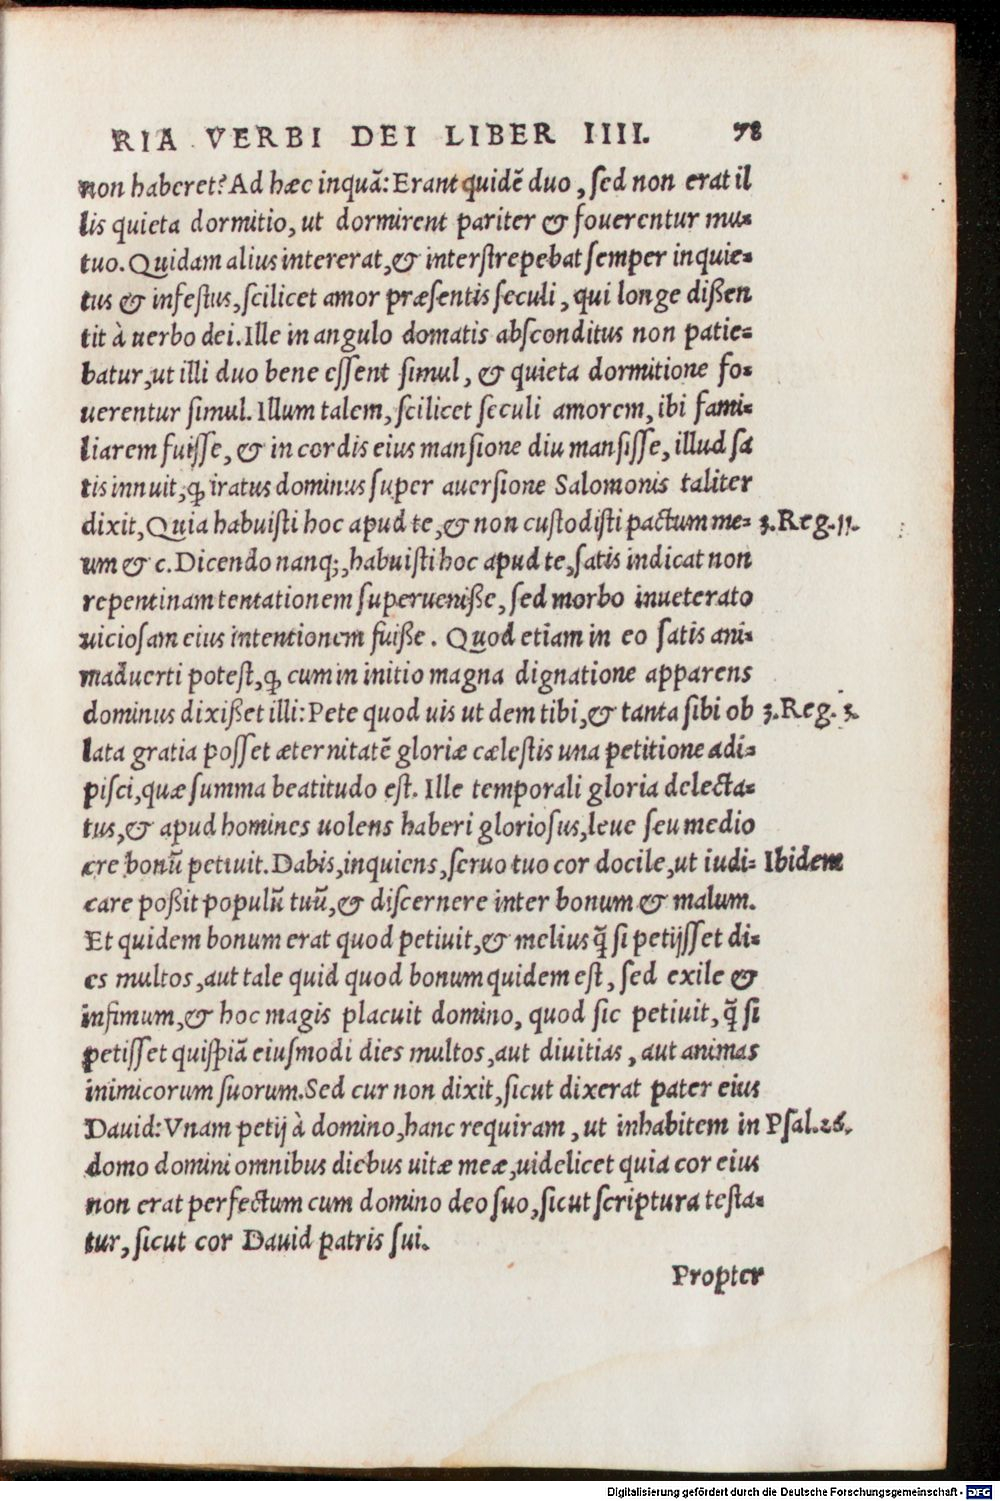 RIA VERBI DEI LIBER IIII. 78
non haberet? Ad hæc inquā: Erant quidē duo, sed non erat il
lis quieta dormitio, ut dormirent pariter & fouerentur mu-
tuo. Quidam alius intererat, & interstrepebat semper inquie-
tus & infestus, scilicet amor præsentis seculi, qui longe dißen
tit à uerbo dei. Ille in angulo domatis absconditus non patie-
batur, ut illi duo bene essent simul, & quieta dormitione fo-
uerentur simul. Illum talem, scilicet seculi amorem, ibi fami-
liarem fuisse, & in cordis eius mansione diu mansisse, illud sa
tis innuit, ꝙ iratus dominus super auersione Salomonis taliter
dixit, Quia habuisti hoc apud te, & non custodisti pactum me- 3. Reg. 11.
um & c. Dicendo nanq;, habuisti hoc apud te, satis indicat non
repentinam tentationem superueniße, sed morbo inueterato
uiciosam eius intentionem fuiße. Quod etiam in eo satis ani-
maduerti potest, ꝙ cum in initio magna dignatione apparens
dominus dixißet illi: Pete quod uis ut dem tibi, & tanta sibi ob 3. Reg. 3.
lata gratia posset æternitatē gloriæ cælestis una petitione adi-
pisci, quæ summa beatitudo est. Ille temporali gloria delecta-
tus, & apud homines uolens haberi gloriosus, leue seu medio
cre bonū petiuit. Dabis, inquiens, seruo tuo cor docile, ut iudi- Ibidem
care poßit populū tuū, & discernere inter bonum & malum.
Et quidem bonum erat quod petiuit, & melius q̄ si petijsset di-
es multos, aut tale quid quod bonum quidem est, sed exile &
infimum, & hoc magis placuit domino, quod sic petiuit, q̄ si
petisset quispiā eiusmodi dies multos, aut diuitias, aut animas
inimicorum suorum. Sed cur non dixit, sicut dixerat pater eius
Dauid: Vnam petij à domino, hanc requiram, ut inhabitem in Psal. 26.
domo domini omnibus diebus uitæ meæ, uidelicet quia cor eius
non erat perfectum cum domino deo suo, sicut scriptura testa-
tur, sicut cor Dauid patris sui.
Propter
Digitalisierung gefördert durch die Deutsche Forschungsgemeinschaft - DFG